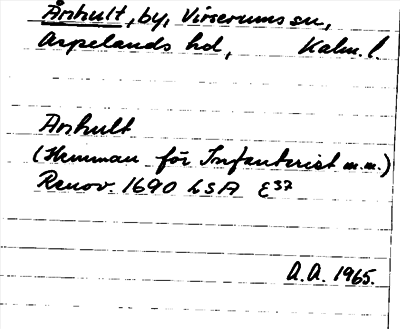 Århult, by, Virserums sn,
Aspelands hd, Kalm. l.
Arhult
(Hemman för Infanterist m.m.)
Renov. 1690 LSA E37
A.A. 1965.